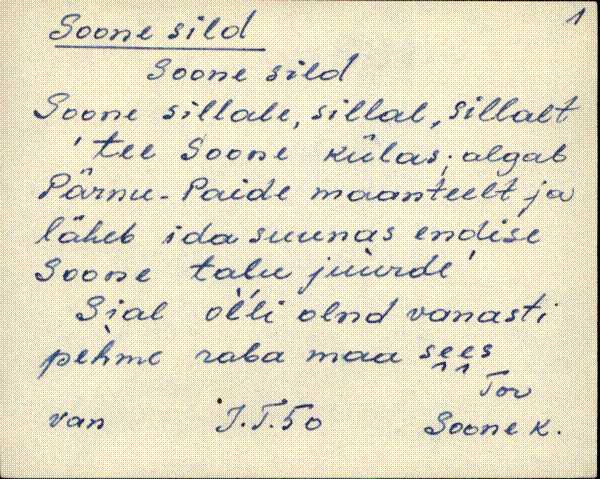 1
Soone sild
Soone sild
Soone sillale, sillal, sillalt
'tee Soone külas; algab
Pärnu-Paide maanteelt ja
läheb ida suunas endise
Soone talu juurde
Sial olli olnd vanasti
pehme raba maa sees
Tor
van J.T.50 Soone k.